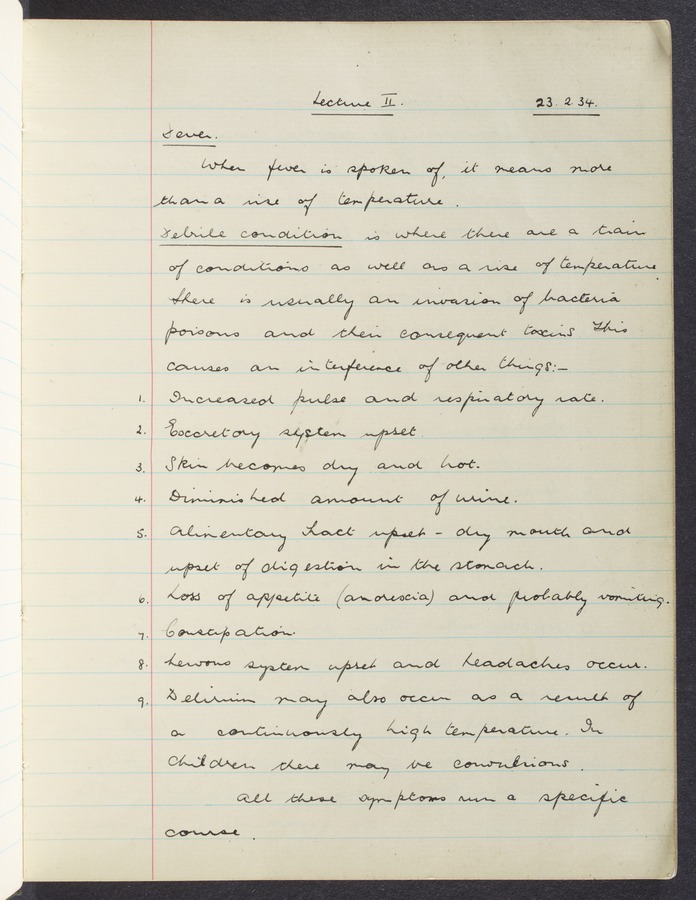 Lecture II. 23.2.34.
Fever.
When fever is spoken of, it means more
than a rise of temperature.
Febrile condition is where there are a train
of conditions as well as a rise of temperature.
there is usually an invasion of bacteria
poisons and their consequent toxins This
causes an interference of other things:-
1. Increased pulse and respiratory rate.
2. Excretory system upset.
3. Skin becomes dry and hot.
4. Diminished amount of urine.
5. Alimentary tract upset - dry mouth and
upset of digestion in the stomach.
6. Loss of appetite (anorexia) and probably vomiting.
7. Constipation.
8. Nervous system upset and headaches occur.
9. Delirium may also occur as a result of
a continuously high temperature. In
children there may be convulsions.
All these symptoms run a specific
course.